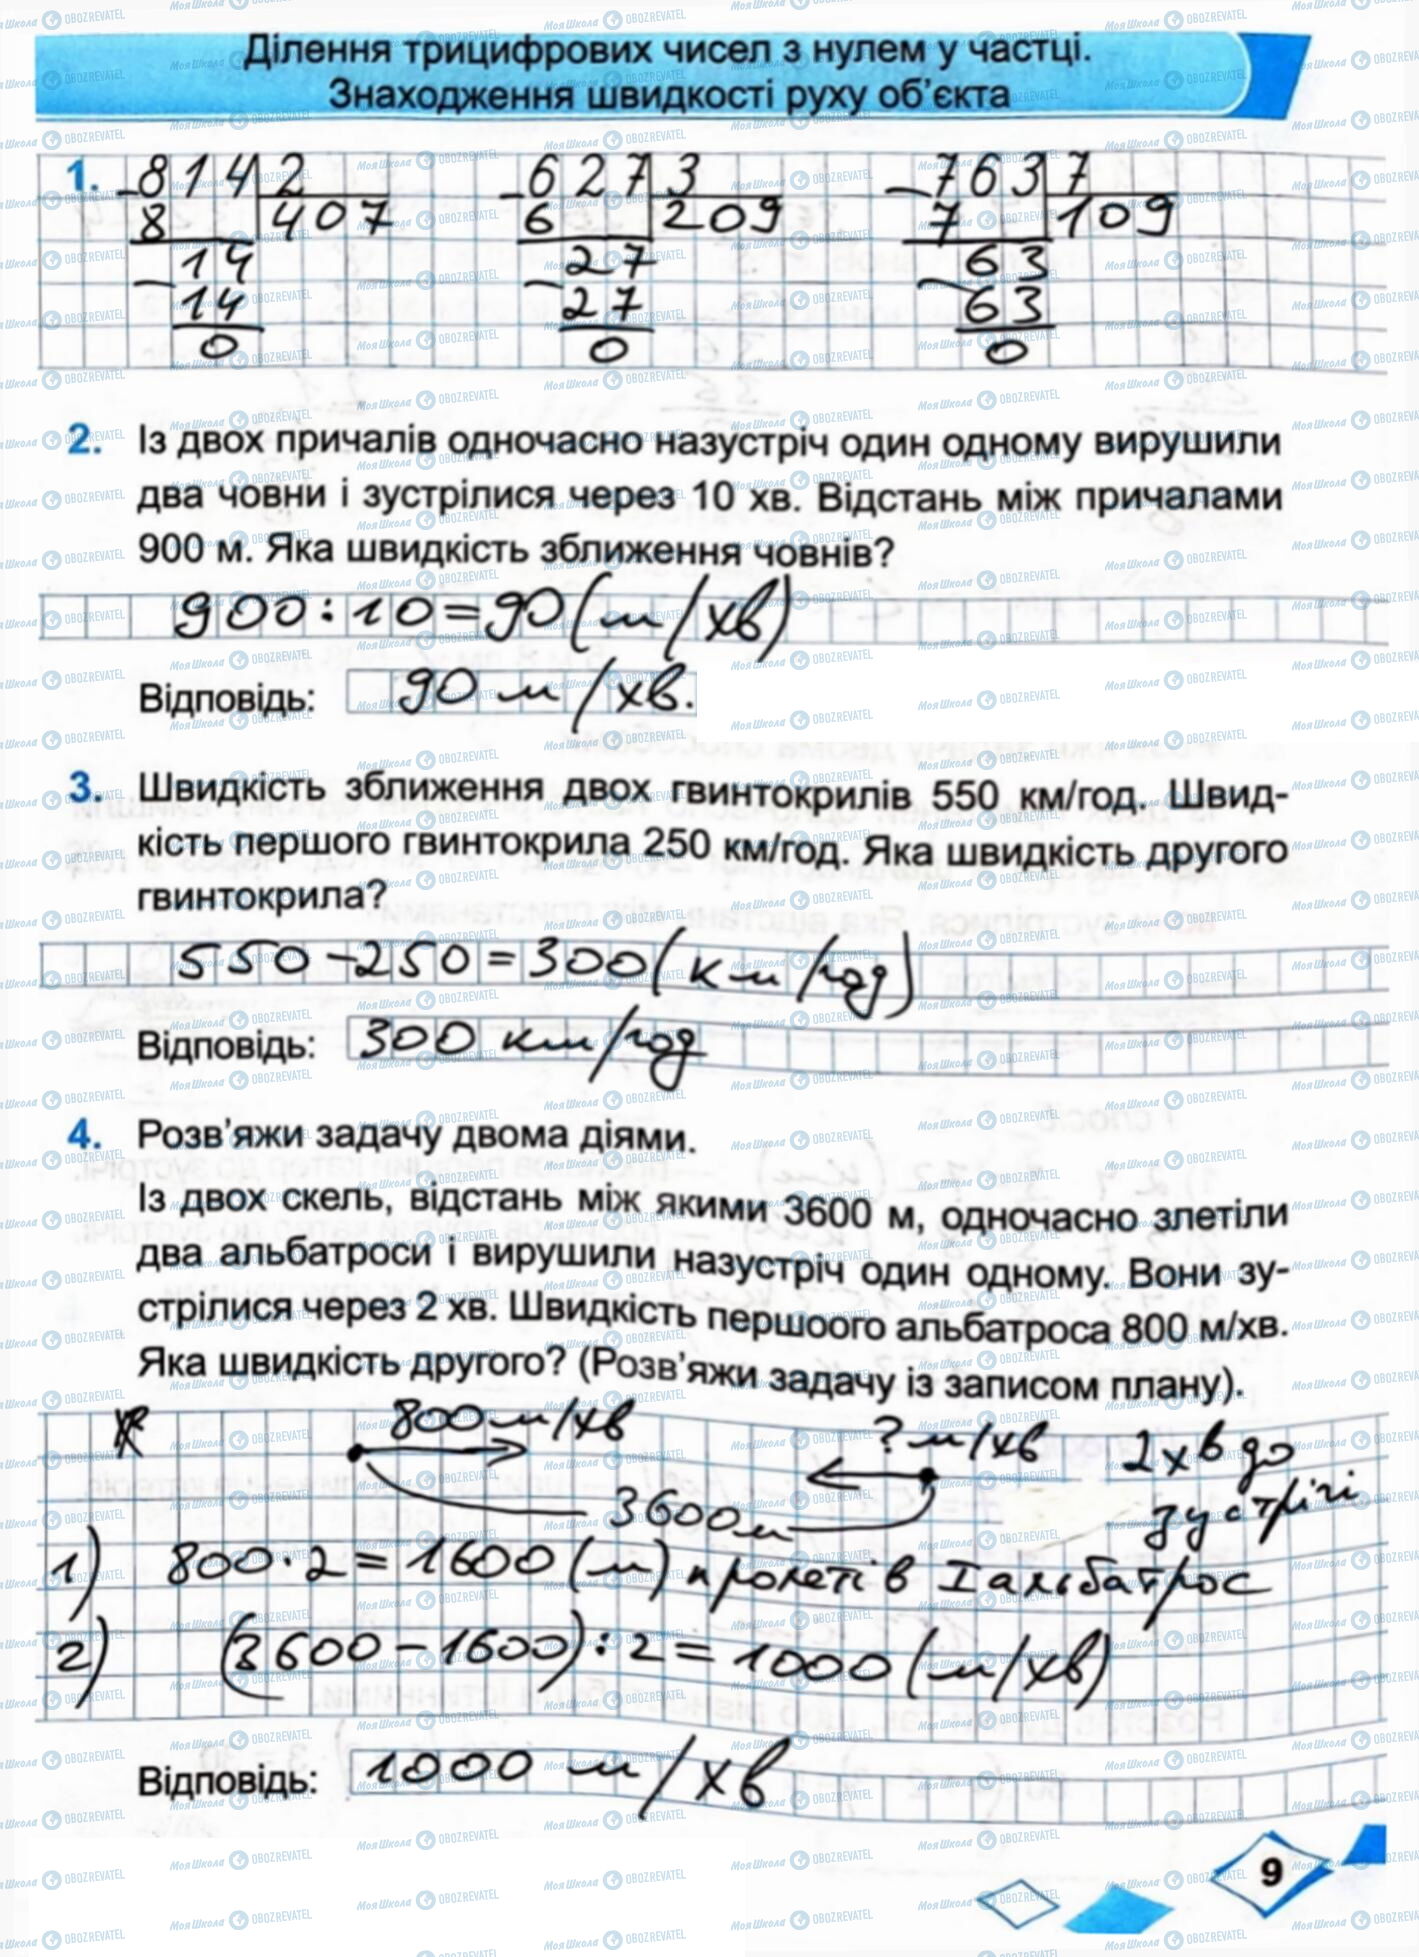 Ділення трицифрових чисел з нулем у частці.
Знаходження швидкості руху об'єкта
1. -814 2 -627 3 -763 7
8 407 6 209 7 109
-14 -27 -63
14 27 63
0 0 0
2. Із двох причалів одночасно назустріч один одному вирушили
два човни і зустрілися через 10 хв. Відстань між причалами
900 м. Яка швидкість зближення човнів?
900:10=90(м/хв)
Відповідь: 90 м/хв.
3. Швидкість зближення двох гвинтокрилів 550 км/год. Швид-
кість першого гвинтокрила 250 км/год. Яка швидкість другого
гвинтокрила?
550-250=300(км/год)
Відповідь: 300 км/год
4. Розв'яжи задачу двома діями.
Із двох скель, відстань між якими 3600 м, одночасно злетіли
два альбатроси і вирушили назустріч один одному. Вони зу-
стрілися через 2 хв. Швидкість першоого альбатроса 800 м/хв.
Яка швидкість другого? (Розв'яжи задачу із записом плану).
800м/хв ?м/хв 2хв до
3600м зустрічі
1) 800·2=1600(м) пролетів І альбатрос
2) (3600-1600):2=1000(м/хв)
Відповідь: 1000 м/хв
9
МояШкола OBOZREVATEL